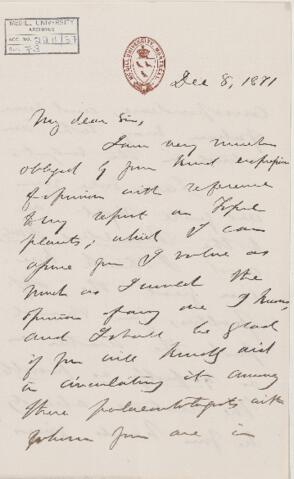 McGILL UNIVERSITY
ARCHIVES
ACC. NO.
REF.
McGILL UNIVERSITY MONTREAL
Dec 8, 1871
My dear Sir,
I am very much
obliged by your kind expression
of opinion with reference
to my report on Fossil
plants; which I can
assure you I value as
much as I would the
opinion of any one I know,
and I shall be glad
if you will kindly aid
in circulating it among
those palaeontologists with
whom you are in